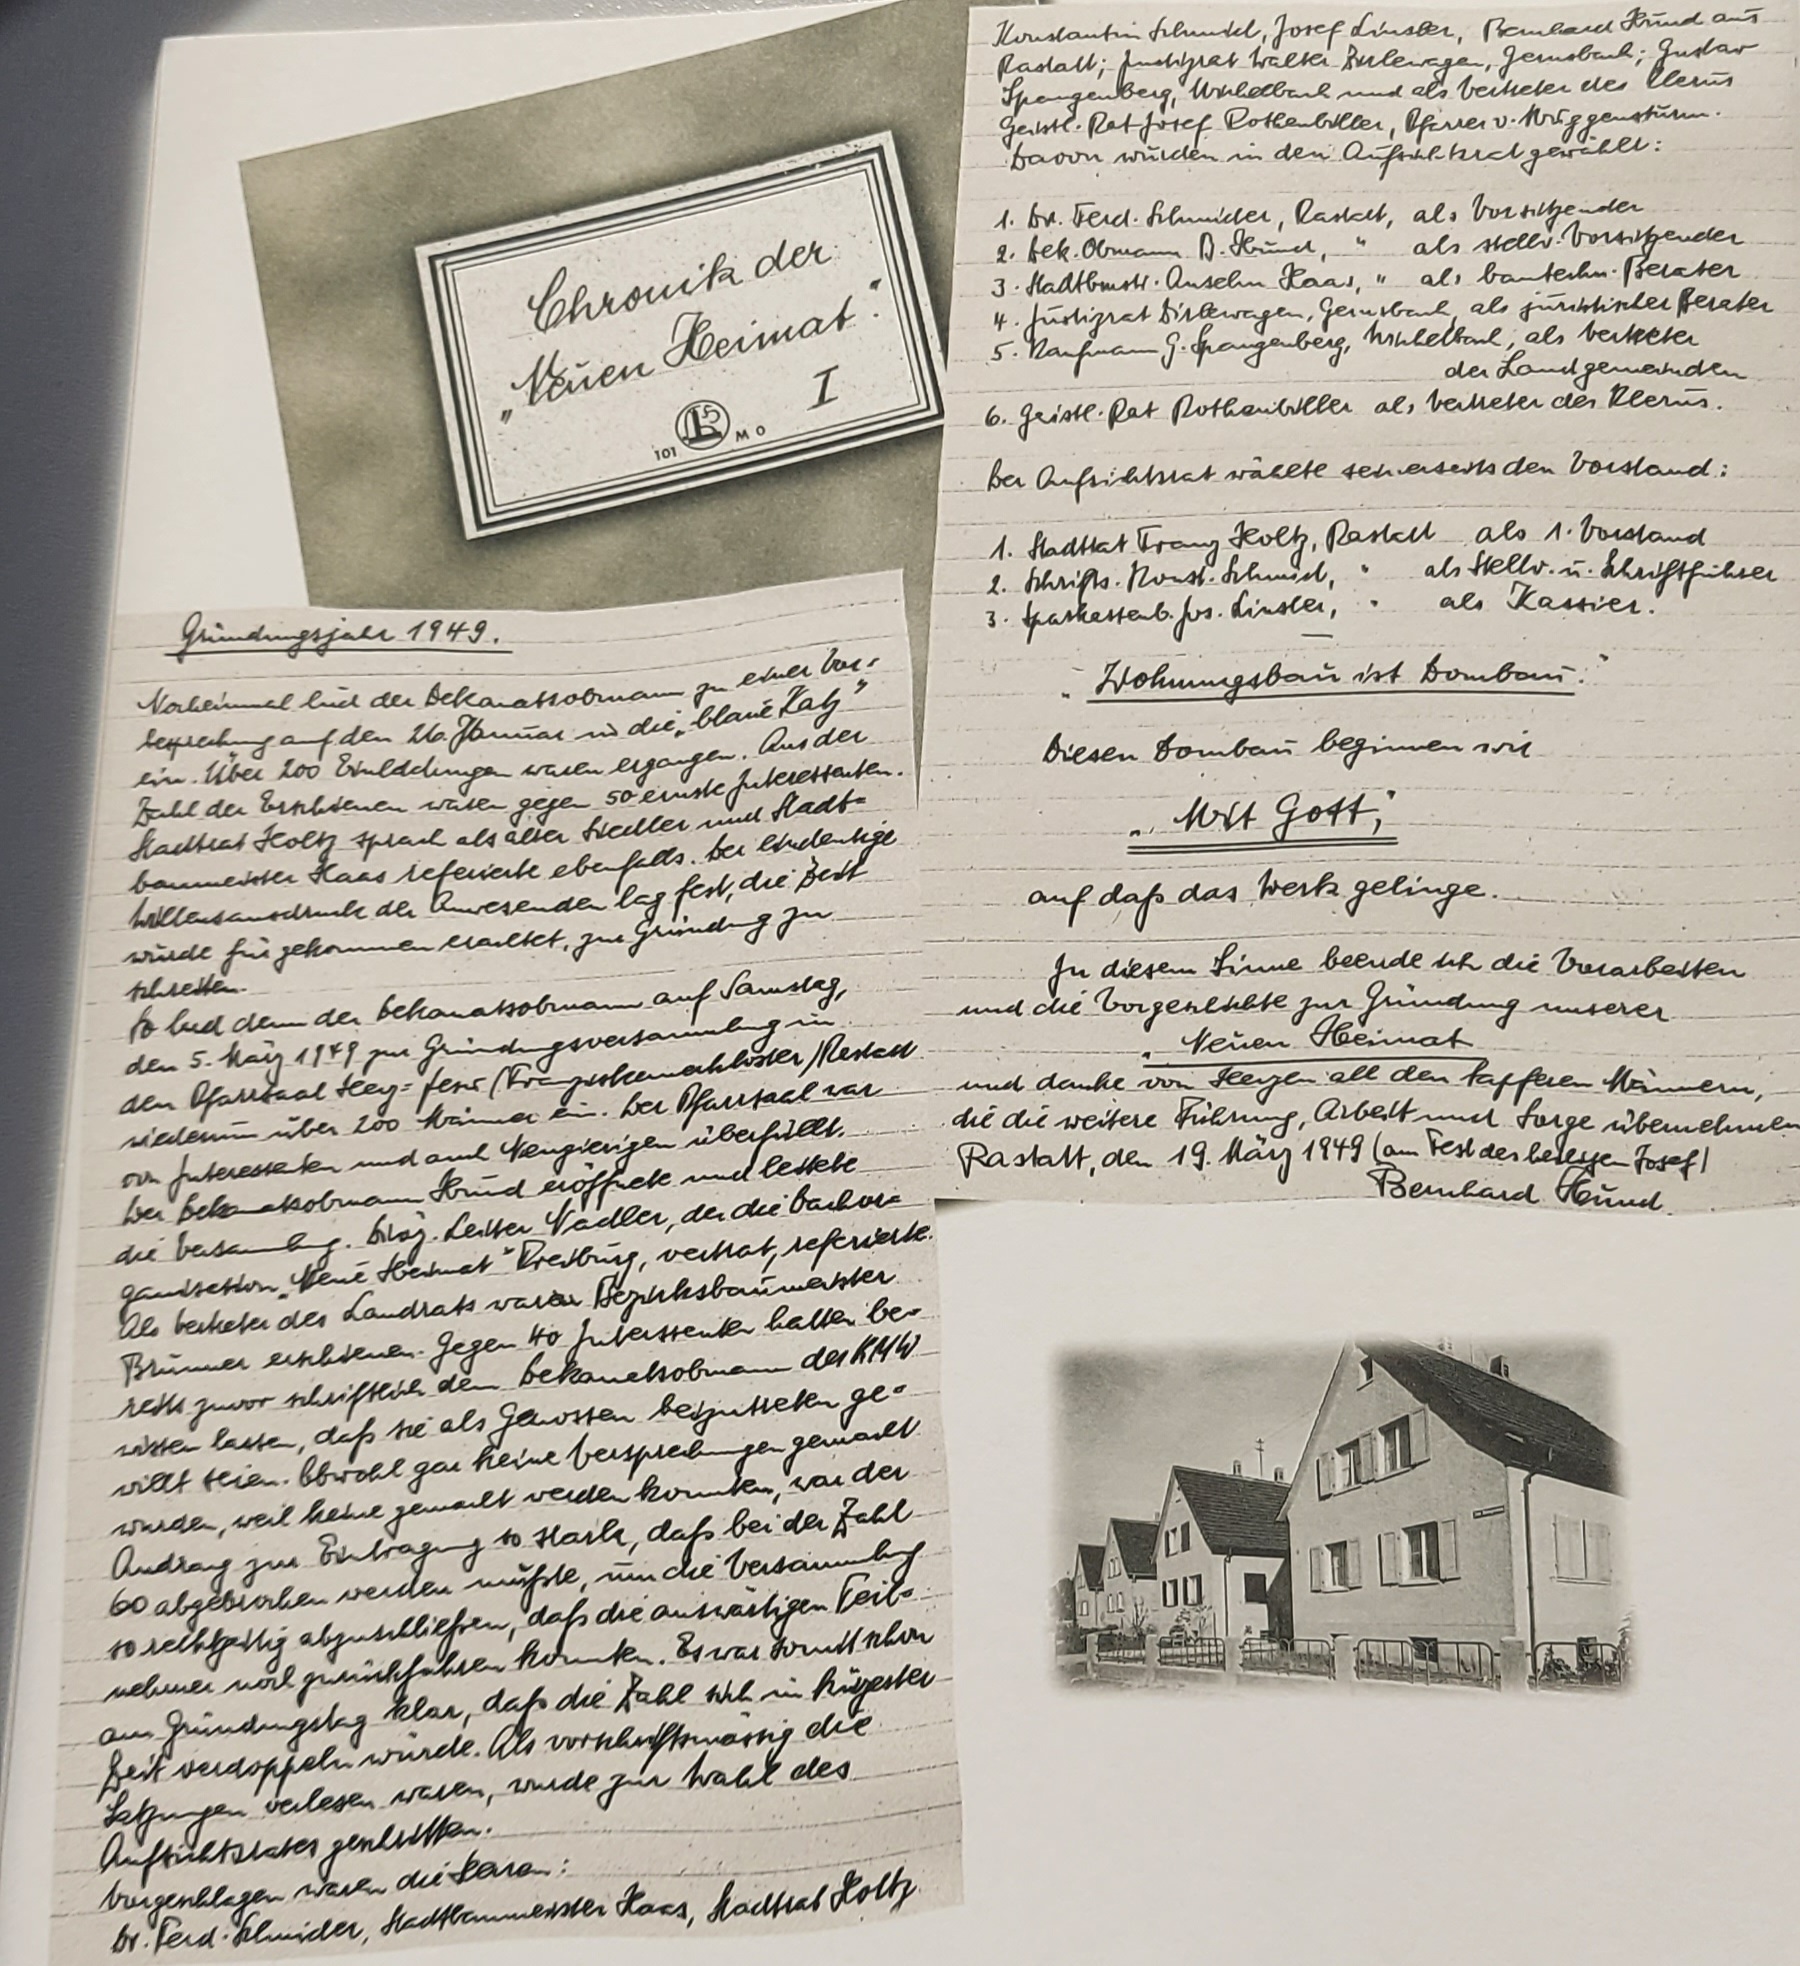 Chronik der
„Neuen Heimat".
I
101 M O
Gründungsjahr 1949.
Nocheinmal lud der Dekanatsobmann zu einer Vor-
besprechung auf den 26. Januar in die „blaue Katz"
ein. Über 200 Einladungen waren ergangen. Aus der
Zahl der Erschienen waren gegen 50 ernste Interessenten.
Stadtrat Holtz sprach als alter Siedler und Stadt=
baumeister Haas referierte ebenfalls. Der eindeutige
Willensausdruck der Anwesenden lag fest, die Zeit
wurde für gekommen erachtet, zur Gründung zu
schreiten.
So lud denn der Dekanatsobmann auf Samstag,
den 5. März 1949 zur Gründungsversammlung in
den Pfarrsaal Herz=Jesu (Franziskanerkloster) Rastatt
wiederum über 200 Männer ein. Der Pfarrsaal war
von Interessenten und auch Neugierigen überfüllt.
Der Dekanatsobmann Hund eröffnete und leitete
die Versammlung. Diöz. Leiter Nadler, der die Dachor=
ganisation „Neue Heimat" Freiburg, vertrat, referierte.
Als Vertreter des Landrats war Bezirksbaumeister
Brunner erschienen. Gegen 40 Interssenten hatten be-
reits zuvor schriftlich dem Dekanatsobmann des KMW
wissen lassen, daß sie als Genossen beizutreten ge-
willt seien. Obwohl gar keine Versprechungen gemacht
wurden, weil keine gemacht werden konnten, war der
Andrang zur Eintragung so stark, daß bei der Zahl
60 abgebrochen werden mußte, um die Versammlung
so rechtzeitig abzuschließen, daß die auswärtigen Teil-
nehmer noch zurückfahren konnten. Es war somit schon
am Gründungstag klar, daß die Zahl sich in kürzester
Zeit verdoppeln würde. Als vorschriftsmässig die
Satzungen verlesen waren, wurde zur Wahl des
Aufsichtsrates geschritten.
Vorgeschlagen waren die Herren:
Dr. Ferd. Schneider, Stadtbaumeister Haas, Stadtrat Holtz
Konstantin Schmid, Josef Linsler, Bernhard Hund aus
Rastatt; Justizrat Walter Dirlewagen, Gernsbach; Gustav
Spangenberg, Michelbach und als Vertreter des Klerus
Geistl. Rat Josef Rothenbiller, Pfarrer v. Muggensturm.
Davon wurden in den Aufsichtsrat gewählt:
1. Dr. Ferd. Schneider, Rastatt, als Vorsitzender
2. Dek. Obmann B. Hund, " als stellv. Vorsitzender
3. Stadtbmstr. Anselm Haas, " als bautechn. Berater
4. Justizrat Dirlewagen, Gernsbach, als juristischer Berater
5. Kaufmann G. Spangenberg, Michelbach, als Vertreter
der Landgemeinden
6. Geistl. Rat Rothenbiller als Vertreter des Klerus.
Der Aufsichtsrat wählte seinerseits den Vorstand:
1. Stadtrat Franz Holtz, Rastatt als 1. Vorstand
2. Schrifts. Konst. Schmid, " als Stellv. u. Schriftführer
3. Sparkassenb. Jos. Linsler, " als Kassier.
„Wohnungsbau ist Dombau."
Diesen Dombau beginnen wir
„Mit Gott",
auf daß das Werk gelinge.
In diesem Sinne beende ich die Vorarbeiten
und die Vorgeschichte zur Gründung unserer
„Neuen Heimat
und danke von Herzen all den tapferen Männern,
die die weitere Führung, Arbeit und Sorge übernehmen
Rastatt, den 19. März 1949 (am Fest des heiligen Josef)
Bernhard Hund